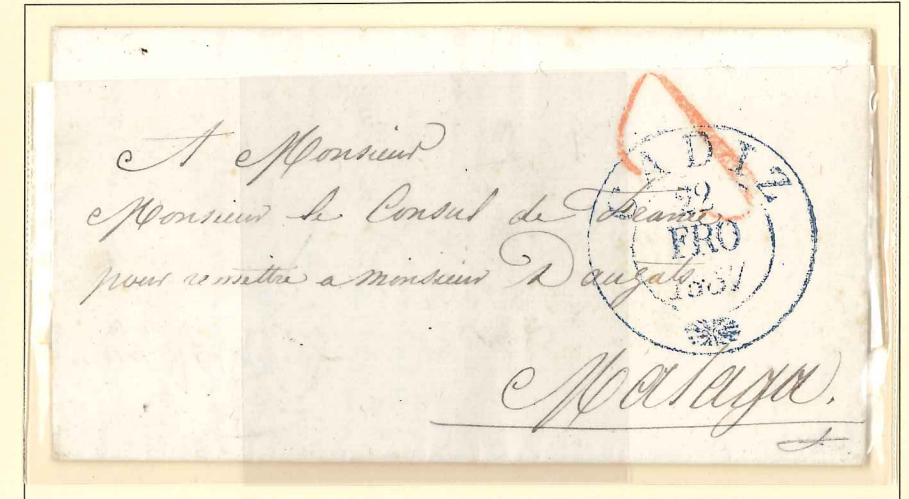 A Monsieur
Monsieur le Consul de France
pour remettre a monsieur Dauzats
Malaga.
CADIZ
22
FRO
1837